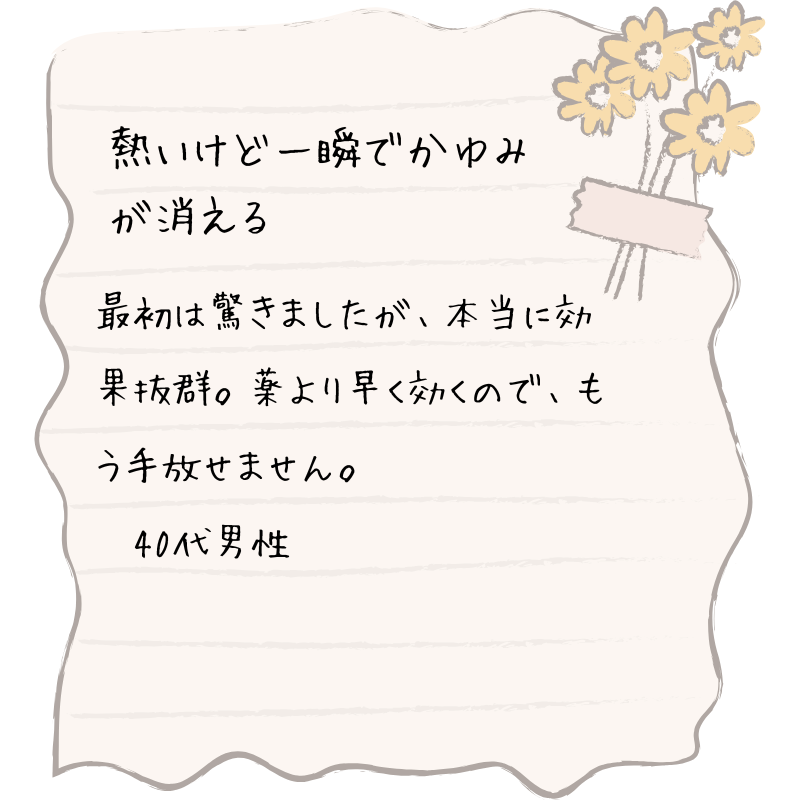 熱いけど一瞬でかゆみ
が消える
最初は驚きましたが、本当に効
果抜群。薬より早く効くので、も
う手放せません。
40代男性